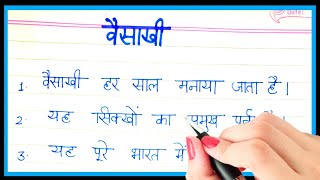 वैसाखी
1. वैसाखी हर साल मनाया जाता है।
2. यह सिक्खों का प्रमुख पर्व है।
3. यह पूरे भारत में